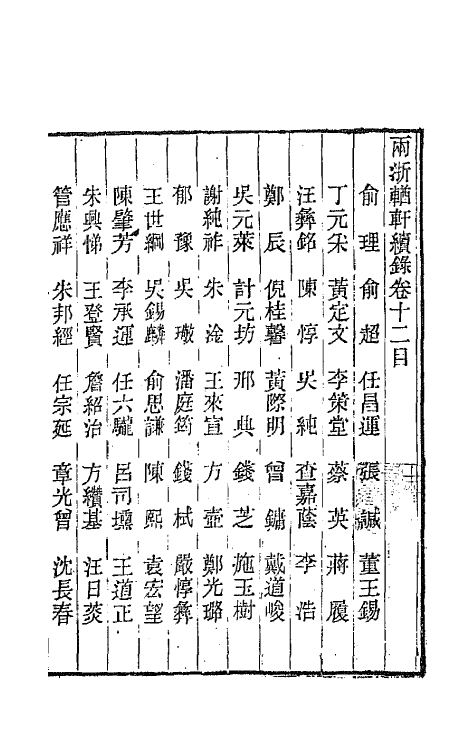 兩浙輶軒續錄卷十二目
俞理 俞超 任昌運 張誠 董王錫
丁元宷 黃定文 李策堂 蔡英 蔣履
汪彝銘 陳惇 吳純 查嘉蔭 李浩
鄭辰 倪桂馨 黃際明 曾鏞 戴道峻
吳元萊 計元坊 邢典 錢芝 施玉樹
謝純祚 朱淦 王來宣 方壺 鄭光璐
郁豫 吳璥 潘庭筠 錢栻 嚴惇彝
王世綱 吳錫麟 俞思謙 陳熙 袁宏望
陳肇芳 李承運 任六驪 呂司壎 王道正
朱興悌 王登賢 詹紹治 方纘基 汪日葵
管應祥 朱邦經 任宗延 章光曾 沈長春